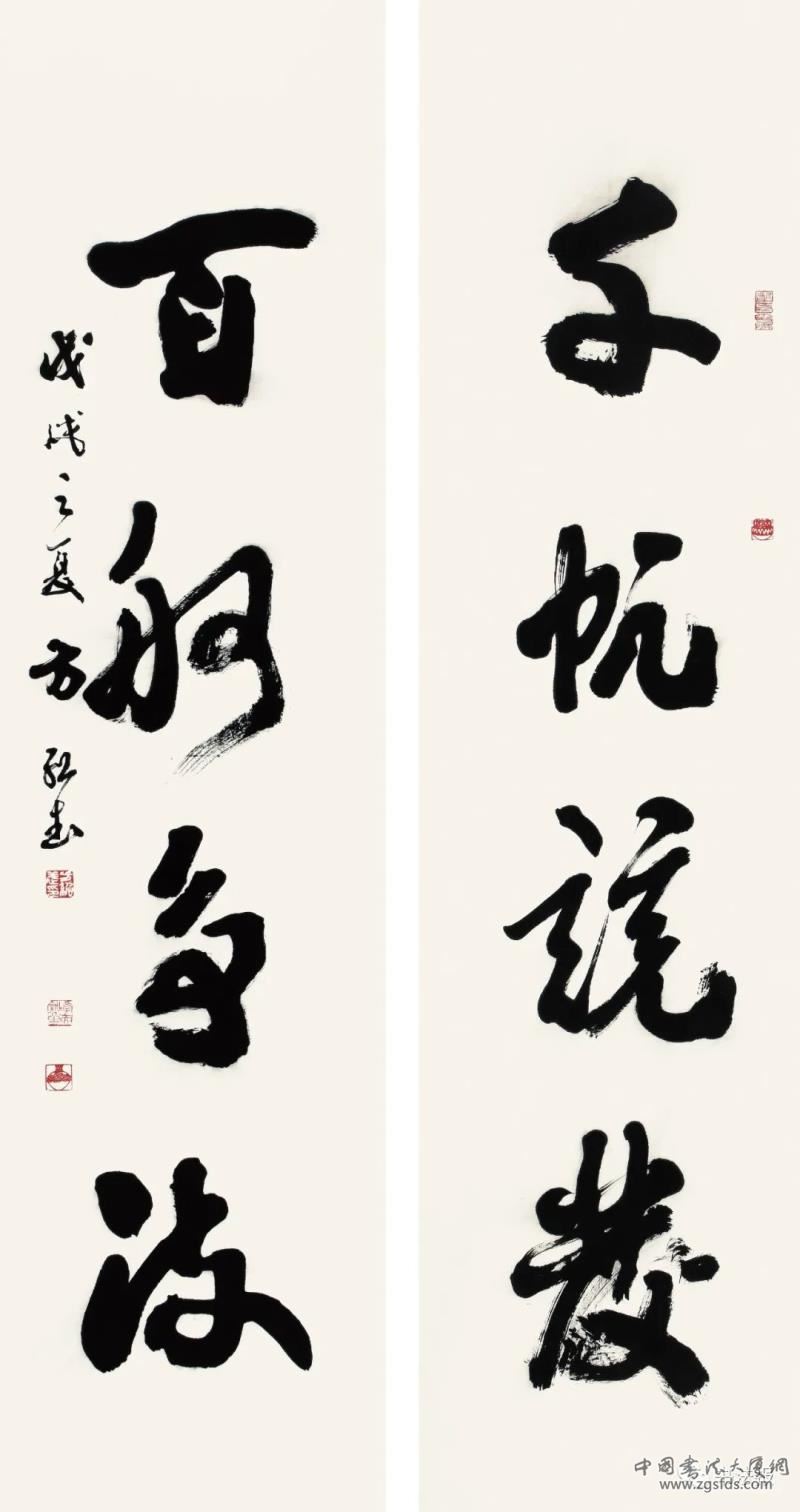 千帆競發
百舸争流
戊戌之夏方
中國書法大廈網
www.zgsfds.com